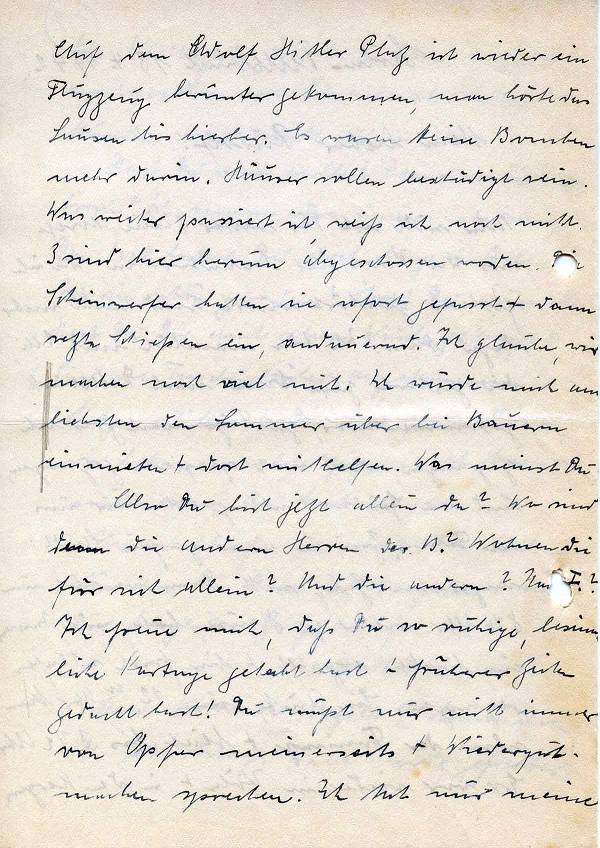 Auf dem Adolf Hitler Platz ist wieder ein
Flugzeug herunter gekommen, man hörte das
Sausen bis hierher. Es waren keine Bomben
mehr darin. Häuser sollen beschädigt sein.
Was weiter passiert ist weiß ich noch nicht.
3 sind hier herum abgeschossen worden. Die
Scheinwerfer hatten sie sofort gefasst + dann
setzte Schießen ein, andauernd. Ich glaube, wir
machen noch viel mit. Ich würde mich am
liebsten den Sommer über bei Bauern
einmieten + dort mithelfen. Was meinst Du
Also Du bist jetzt allein da? Wo sind
denn die andern Herren des B.? Wohnen die
für sich allein? Und die andern? I.?
Ich freue mich, daß Du so ruhige, besinn
liche Kartage gehabt hast + früherer Zeiten
gedacht hast! Du mußt nur nicht immer
von Opfer meinerseits + Wiedergut-
machen sprechen. Ich hat nur meine